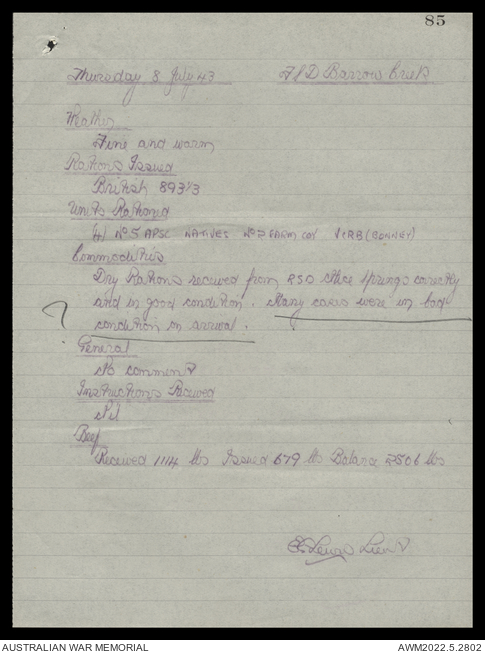 85
Thursday 8 July 43 FSD Barrow Creek
Weather
Fine and warm
Rations Issued
British 893 1/3
Units Rationed
4) No 5 APSC NATIVES No 2 FARM COY VCRB (BONNEY)
Commodities
Dry Rations received from RSO Alice Springs correctly
and in good condition. Many cases were in bad
? condition on arrival.
General
No comment
Instructions Received
Nil
Beef
Received 1114 lbs Issued 679 lbs Balance 2506 lbs
Lewis Lieut
AUSTRALIAN WAR MEMORIAL AWM2022.5.2802